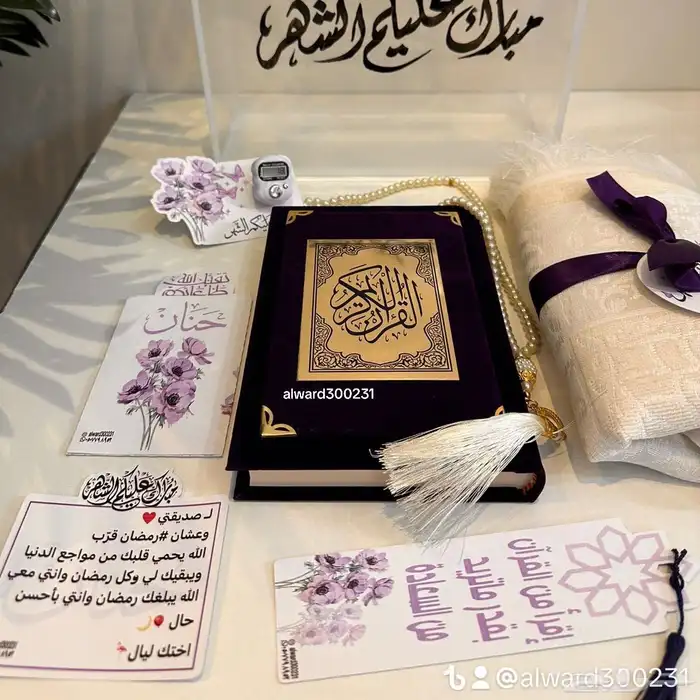 مبارك عليكم الشهر
عليكم الشهر
تقبل الله
طاعتكم
حنان
القرآن الكريم
alward300231
مبارك عليكم الشهر
لـ صديقتي ❤️
وعشان #رمضان قرّب
الله يحمي قلبك من مواجع الدنيا
ويبقيك لي وكل رمضان وانتي معي
الله يبلغك رمضان وانتي بأحسن
حال 🎈🌙
اختك ليال 🦩
إقرأ من القرآن
بقدر ماتريد
من السعادة
@alward300231